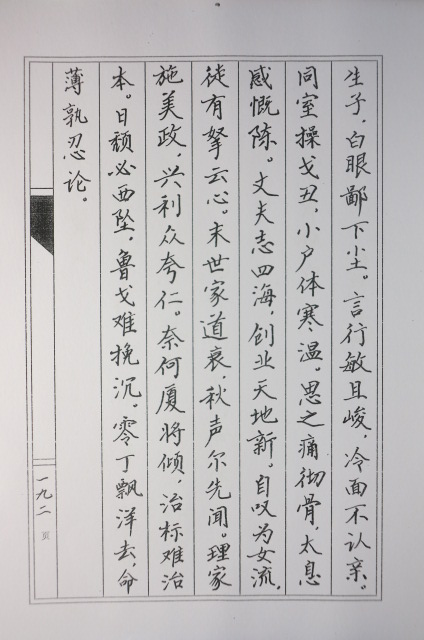 生子，白眼鄙下尘。言行敏且峻，冷面不认亲。
同室操戈丑，小户体寒温。思之痛彻骨，太息
感慨陈。丈夫志四海，创业天地新。自叹为女流，
徒有拏云心。末世家道衰，秋声尔先闻。理家
施美政，兴利众夸仁。奈何厦将倾，治标难治
本。日颓必西坠，鲁戈难挽沉。零丁飘洋去，命
薄孰忍论。
一九二页